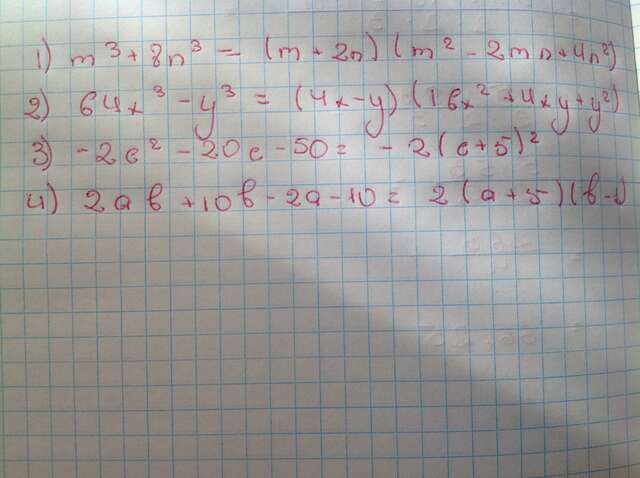 1) m³ + 8n³ = (m + 2n) (m² - 2mn + 4n²)
2) 64x³ - y³ = (4x - y) (16x² + 4xy + y²)
3) -2c² - 20c - 50 = -2(c + 5)²
4) 2ab + 10b - 2a - 10 = 2(a + 5)(b - 1)